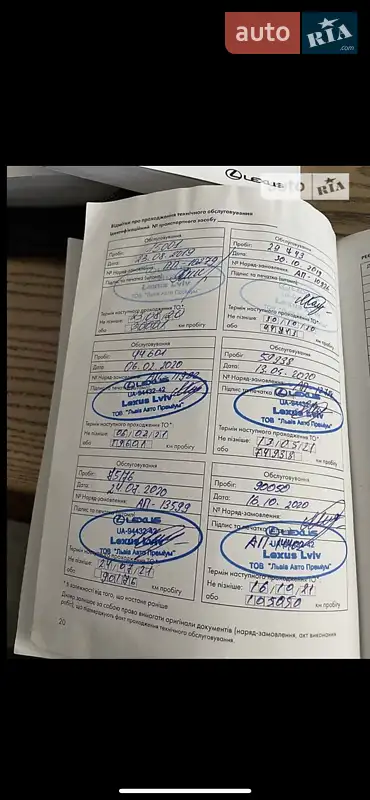 auto RIA
.com
LEXUS
auto RIA
Відмітки про проходження технічного обслуговування
Ідентифікаційний № транспортного засобу
Обслуговування
Пробіг:
Дата: 23.08.2019
№ Наряд-замовлення:
Підпис та печатка (штамп)
Lexus Lviv
ТОВ "Львів Авто Преміум"
Термін наступного проходження ТО*:
Не пізніше:
або 30001 км пробігу
Обслуговування
Пробіг: 29 493
Дата: 30.10.2019
№ Наряд-замовлення: АП-
Підпис та печатка (штамп)
Lexus Lviv
Термін наступного проходження ТО*:
Не пізніше: 30/10/20
або км пробігу
Обслуговування
Пробіг: 44601
Дата: 06.02.2020
№ Наряд-замовлення:
Підпис та печатка
LEXUS
UA-94432-42
Lexus Lviv
ТОВ "Львів Авто Преміум"
Термін наступного проходження ТО*:
Не пізніше: 06/02/21
або 59601 км пробігу
Обслуговування
Пробіг: 59938
Дата: 13.05.2020
№ Наряд-замовлення:
Підпис та печатка
LEXUS
Lexus Lviv
ТОВ "Львів Авто Преміум"
Термін наступного проходження ТО*:
Не пізніше: 13/05/21
або 74938 км пробігу
Обслуговування
Пробіг: 75176
Дата: 24.07.2020
№ Наряд-замовлення: АП-13599
Підпис та печатка
LEXUS
UA-94432-42
Lexus Lviv
ТОВ "Львів Авто Преміум"
Термін
Не пізніше: 24/07/21
або 90176 км пробігу
Обслуговування
Пробіг: 90050
Дата: 16.10.2020
№ Наряд-замовлення:
Підпис та печатка
LEXUS
АП
Lexus Lviv
ТОВ "Львів Авто Преміум"
Термін наступного проходження ТО*:
Не пізніше: 16/10/21
або 105050 км пробігу
* В залежності від того, що настане раніше
Дилер залишає за собою право вимагати оригінали документів (наряд-замовлення, акт виконання
робіт), що підтверджують факт проходження технічного обслуговування.
20